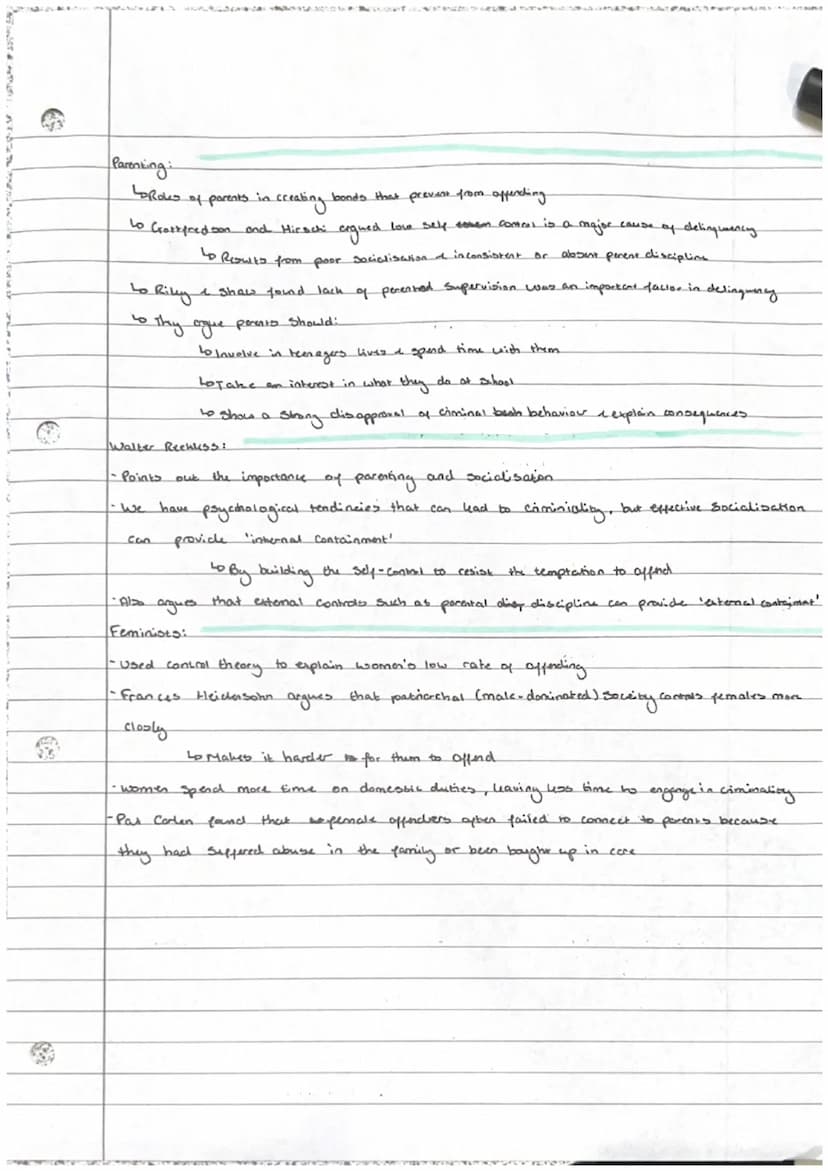 Parenting:
↳ Roles of parents in creating bonds that prevent from offending
↳ Gottfredson and Hirschi argued low self control is a major cause of delinquency
↳ Results from poor socialisation & inconsistent or absent parent discipline
↳ Riley & Shaw found lack of parental supervision was an important factor in delinquency
↳ Thy argue parents should:
↳ Involve in teenagers lives & spend time with them
↳ Take an interest in what they do at school
↳ Show a strong disapproval of criminal behaviour & explain consequences
Walter Reckless:
- Points out the importance of parenting and socialisation
- We have psychological tendincies that can lead to criminiality, but effective socialisation
can provide 'internal containment'
↳ By building the self-control to resist the temptation to offend
- Also argues that external controls such as parental discipline can provide 'external contaiment'
Feminists:
- Used control theory to explain women's low rate of offending
- Frances Heidensohn argues that patriarchal (male-dominated) society controls females more
closly
↳ Makes it harder for them to offend
- Women spend more time on domestic duties, leaving less time to engange in criminality
- Pat Carlen found that female offenders often failed to connect to parents because
they had suffered abuse in the family or been baught up in care